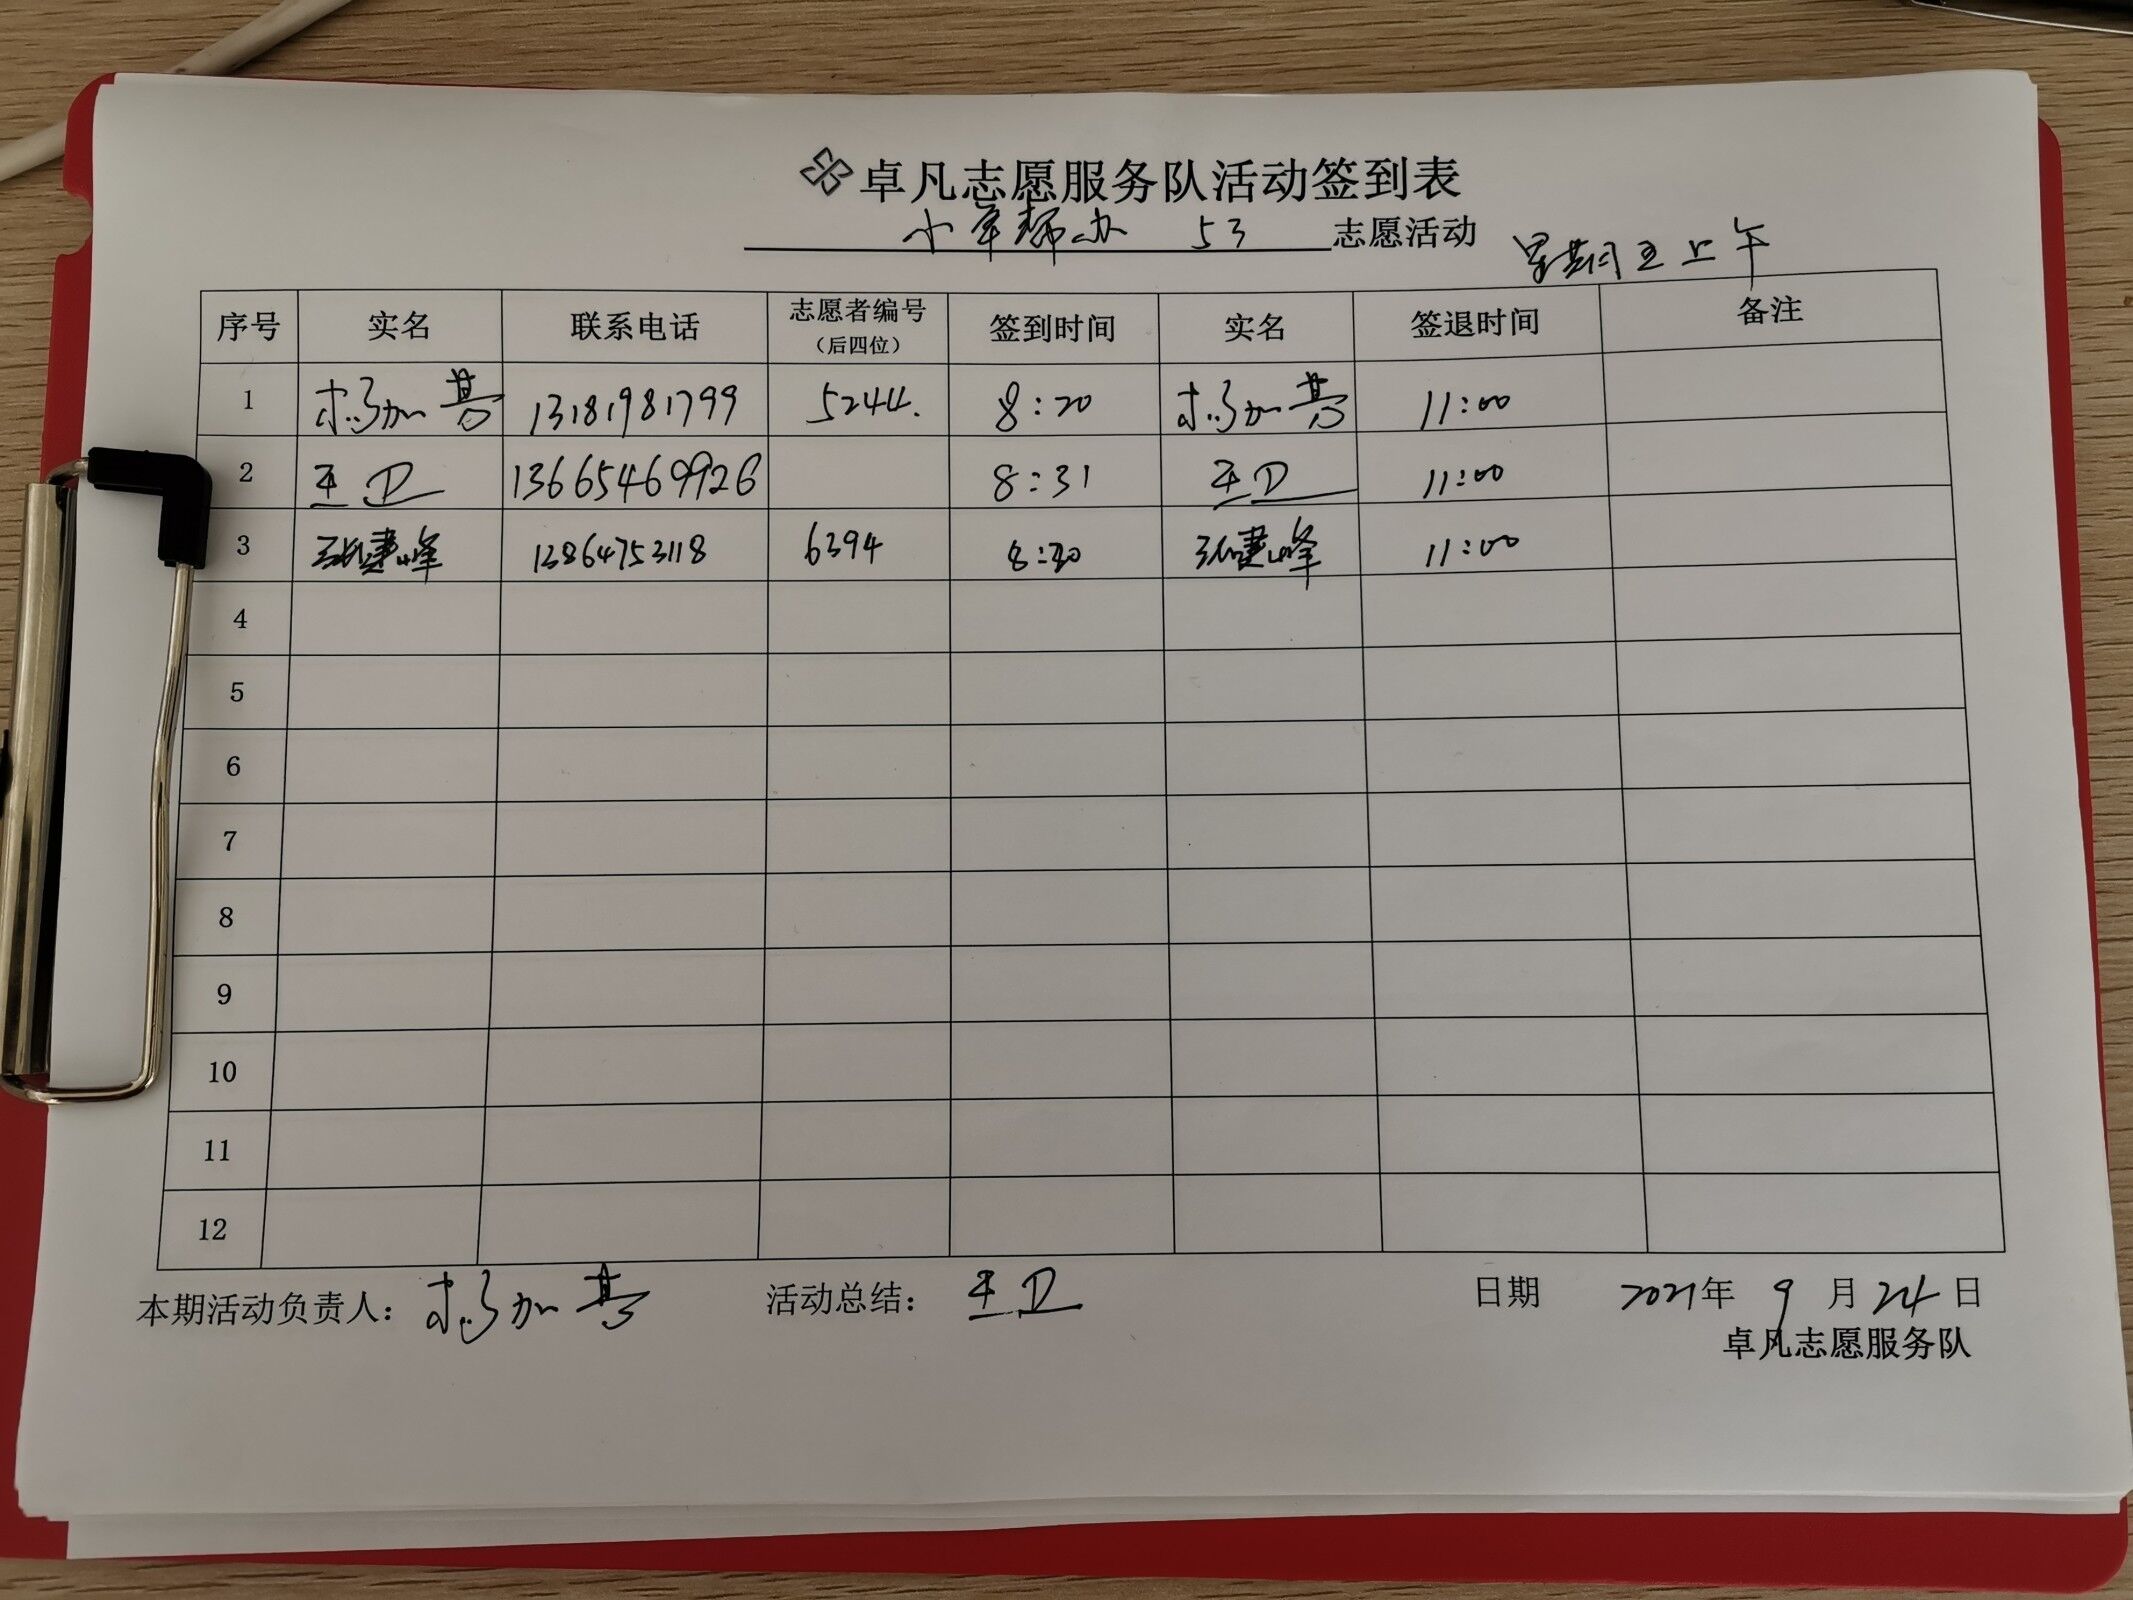 卓凡志愿服务队活动签到表
帮办 53 志愿活动
星期五上午
序号 实名 联系电话 志愿者编号（后四位） 签到时间 实名 签退时间 备注
1 13181981799 5244. 8:20 11:00
2 王卫 13665469926 8:31 王卫 11:00
3 张建峰 13864753118 6394 8:30 张建峰 11:00
4
5
6
7
8
9
10
11
12
本期活动负责人： 活动总结： 王卫 日期 2021年 9 月 24 日
卓凡志愿服务队